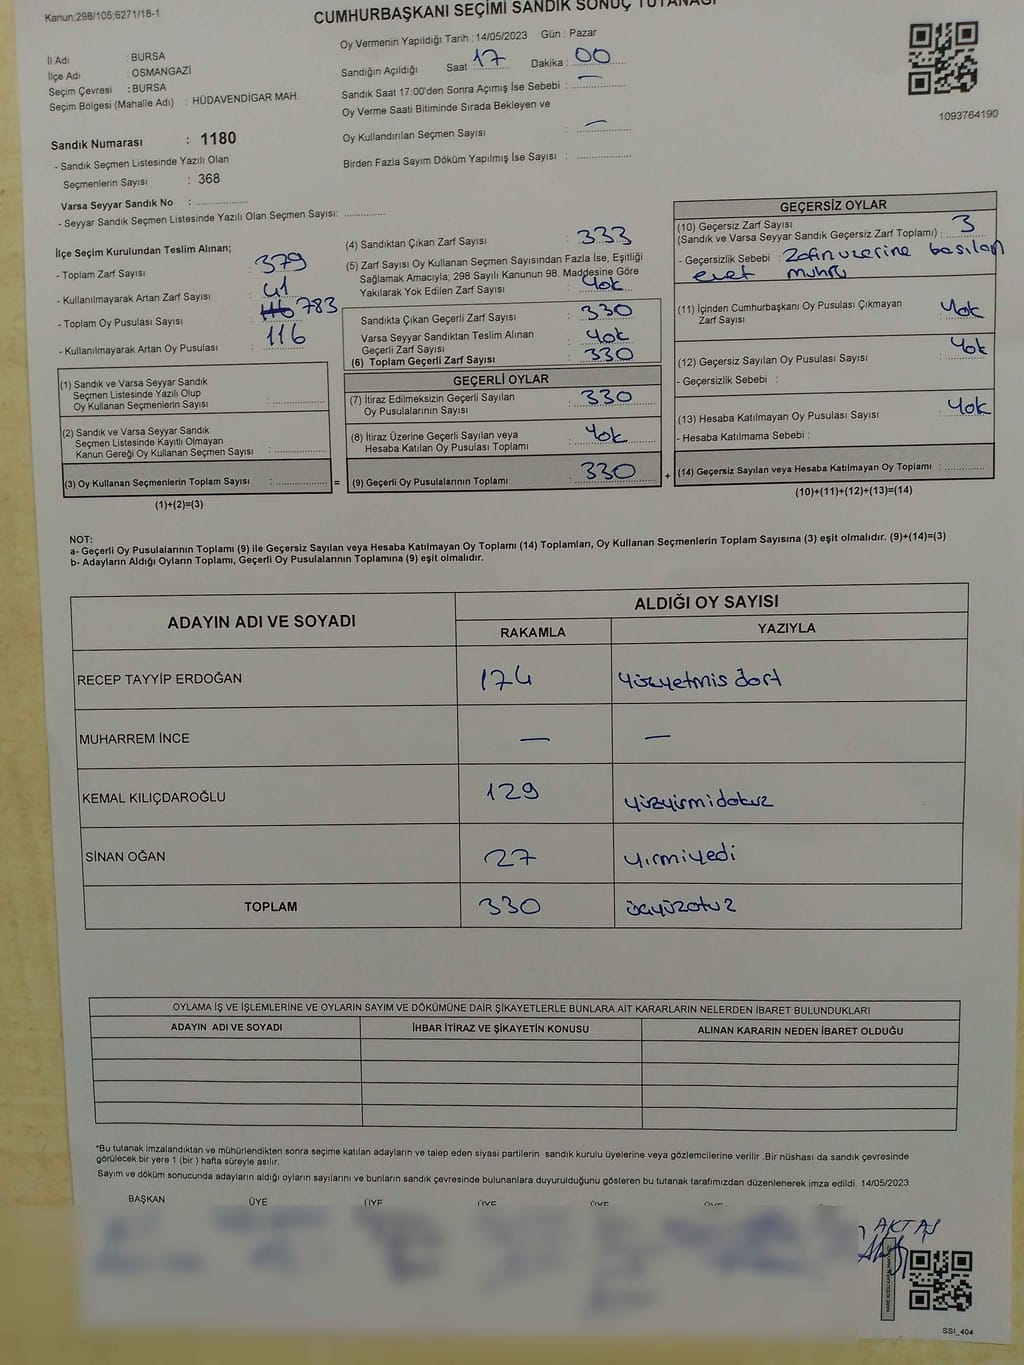 Kanun:298/105;6271/18-1
CUMHURBAŞKANI SEÇİMİ SANDIK SONUÇ TUTANAĞI
Oy Vermenin Yapıldığı Tarih : 14/05/2023 Gün : Pazar
İl Adı : BURSA
İlçe Adı : OSMANGAZİ
Seçim Çevresi : BURSA
Seçim Bölgesi (Mahalle Adı) : HÜDAVENDİGAR MAH.
Sandığın Açıldığı Saat 17 Dakika : 00
Sandık Saat 17:00'den Sonra Açımış İse Sebebi : —
Oy Verme Saati Bitiminde Sırada Bekleyen ve
Oy Kullandırılan Seçmen Sayısı : —
Birden Fazla Sayım Döküm Yapılmış İse Sayısı :
1093764190
Sandık Numarası : 1180
- Sandık Seçmen Listesinde Yazılı Olan
Seçmenlerin Sayısı : 368
Varsa Seyyar Sandık No :
- Seyyar Sandık Seçmen Listesinde Yazılı Olan Seçmen Sayısı:
İlçe Seçim Kurulundan Teslim Alınan;
- Toplam Zarf Sayısı : 379
- Kullanılmayarak Artan Zarf Sayısı : 41
- Toplam Oy Pusulası Sayısı : 783
- Kullanılmayarak Artan Oy Pusulası : 116
(1) Sandık ve Varsa Seyyar Sandık
Seçmen Listesinde Yazılı Olup
Oy Kullanan Seçmenlerin Sayısı :
(2) Sandık ve Varsa Seyyar Sandık
Seçmen Listesinde Kayıtlı Olmayan
Kanun Gereği Oy Kullanan Seçmen Sayısı :
(3) Oy Kullanan Seçmenlerin Toplam Sayısı : =
(1)+(2)=(3)
(4) Sandıktan Çıkan Zarf Sayısı : 333
(5) Zarf Sayısı Oy Kullanan Seçmen Sayısından Fazla İse, Eşitliği
Sağlamak Amacıyla; 298 Sayılı Kanunun 98. Maddesine Göre
Yakılarak Yok Edilen Zarf Sayısı : Yok
Sandıkta Çıkan Geçerli Zarf Sayısı : 330
Varsa Seyyar Sandıktan Teslim Alınan
Geçerli Zarf Sayısı : Yok
(6) Toplam Geçerli Zarf Sayısı : 330
GEÇERLİ OYLAR
(7) İtiraz Edilmeksizin Geçerli Sayılan
Oy Pusulalarının Sayısı : 330
(8) İtiraz Üzerine Geçerli Sayılan veya
Hesaba Katılan Oy Pusulası Toplamı : Yok
(9) Geçerli Oy Pusulalarının Toplamı : 330 +
GEÇERSİZ OYLAR
(10) Geçersiz Zarf Sayısı
(Sandık ve Varsa Seyyar Sandık Geçersiz Zarf Toplamı) : 3
- Geçersizlik Sebebi : Zafın uzerine basılan
evet muhru
(11) İçinden Cumhurbaşkanı Oy Pusulası Çıkmayan
Zarf Sayısı : Yok
(12) Geçersiz Sayılan Oy Pusulası Sayısı : Yok
- Geçersizlik Sebebi :
(13) Hesaba Katılmayan Oy Pusulası Sayısı : Yok
- Hesaba Katılmama Sebebi :
(14) Geçersiz Sayılan veya Hesaba Katılmayan Oy Toplamı :
(10)+(11)+(12)+(13)=(14)
NOT:
a- Geçerli Oy Pusulalarının Toplamı (9) ile Geçersiz Sayılan veya Hesaba Katılmayan Oy Toplamı (14) Toplamları, Oy Kullanan Seçmenlerin Toplam Sayısına (3) eşit olmalıdır. (9)+(14)=(3)
b- Adayların Aldığı Oyların Toplamı, Geçerli Oy Pusulalarının Toplamına (9) eşit olmalıdır.
ADAYIN ADI VE SOYADI
ALDIĞI OY SAYISI
RAKAMLA YAZIYLA
RECEP TAYYİP ERDOĞAN 174 yüzyetmis dört
MUHARREM İNCE — —
KEMAL KILIÇDAROĞLU 129 yüzyirmidokuz
SİNAN OĞAN 27 yirmiyedi
TOPLAM 330 üçyüzotuz
OYLAMA İŞ VE İŞLEMLERİNE VE OYLARIN SAYIM VE DÖKÜMÜNE DAİR ŞİKAYETLERLE BUNLARA AİT KARARLARIN NELERDEN İBARET BULUNDUKLARI
ADAYIN ADI VE SOYADI İHBAR İTİRAZ VE ŞİKAYETİN KONUSU ALINAN KARARIN NEDEN İBARET OLDUĞU
*Bu tutanak imzalandıktan ve mühürlendikten sonra seçime katılan adayların ve talep eden siyasi partilerin sandık kurulu üyelerine veya gözlemcilerine verilir .Bir nüshası da sandık çevresinde
görülecek bir yere 1 (bir ) hafta süreyle asılır.
Sayım ve döküm sonucunda adayların aldığı oyların sayılarını ve bunların sandık çevresinde bulunanlara duyurulduğunu gösteren bu tutanak tarafımızdan düzenlenerek imza edildi. 14/05/2023
BAŞKAN ÜYE ÜYE ÜYE ÜYE ÜYE
AKTAŞ
SSI_404